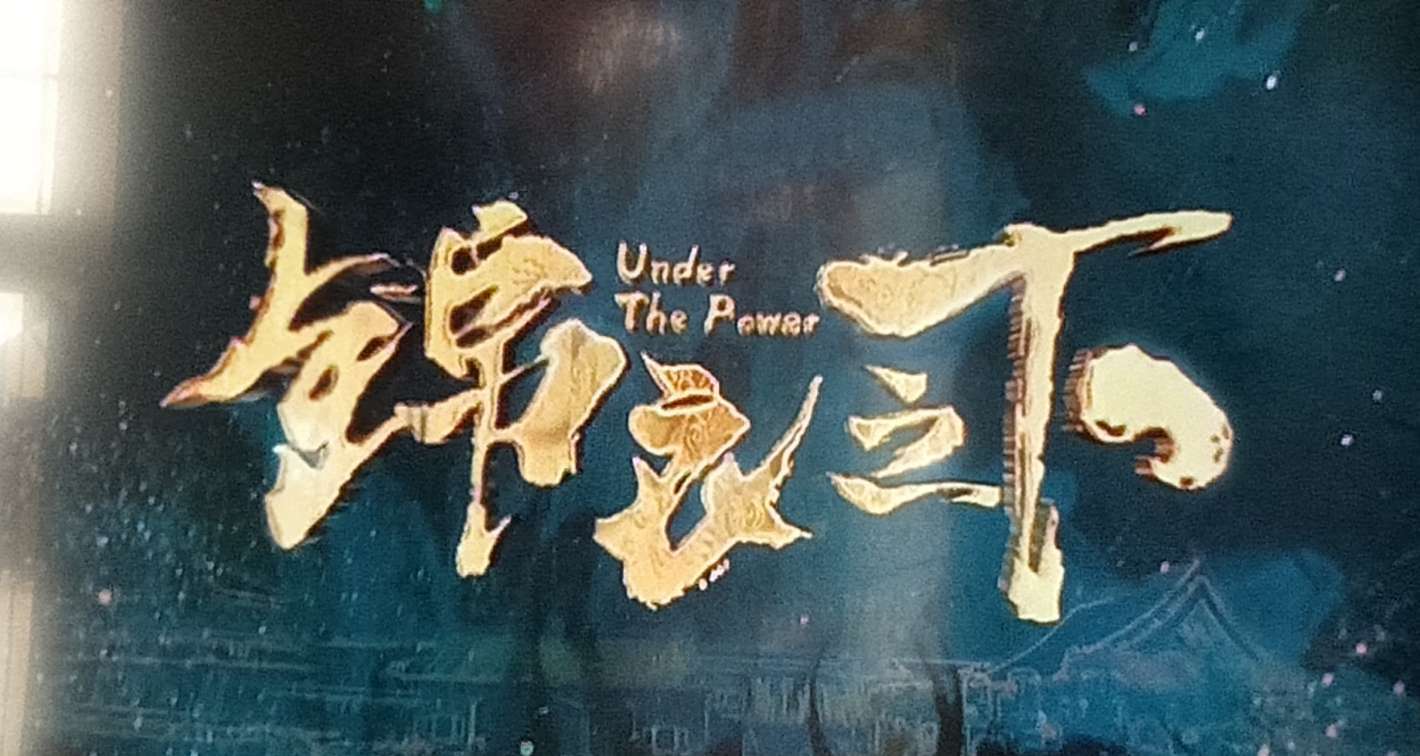 锦衣之下
Under
The Power